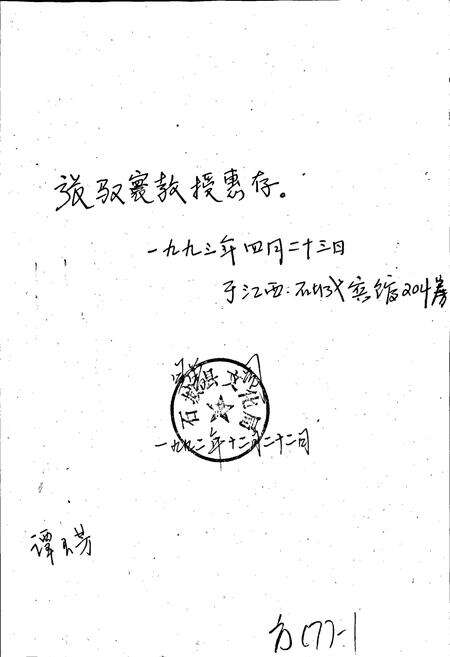 张驭寰教授惠存。
一九九三年四月二十三日
于江西·石城宾馆204房
石城县文化局
一九九二年十二月二十二日
谭
芳
方(7)-1